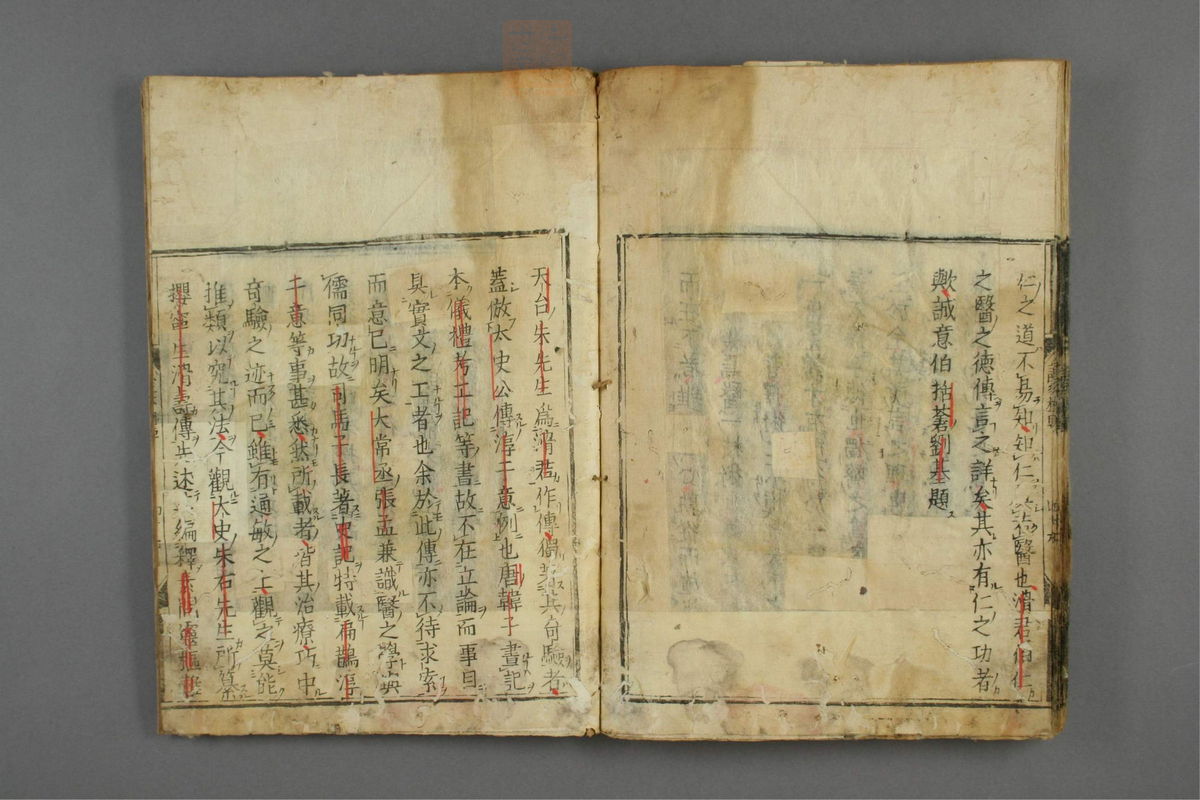 仁之道不易知知仁☐醫也滑君伯仁
之醫之德傳言之詳矣其亦有仁之功者
歟誠意伯括蒼劉基題
天台朱先生為滑君作傳備著其奇驗者
蓋倣太史公傳淳于意例也唐韓子畫記
本儀禮考工記等書故不在立論而事目
具實文之工者也余於此傳亦不待求索
而意已明矣大常丞張孟兼識醫之學與
儒同功故司馬子長著史記特載扁鵲淳
于意等事甚悉然所載者皆其治療巧中
奇驗之迹而已雖有通敏之士觀之莫能
推類以究其法今觀太史朱右先生所纂
攖寧生滑壽傳其述編釋素問靈樞